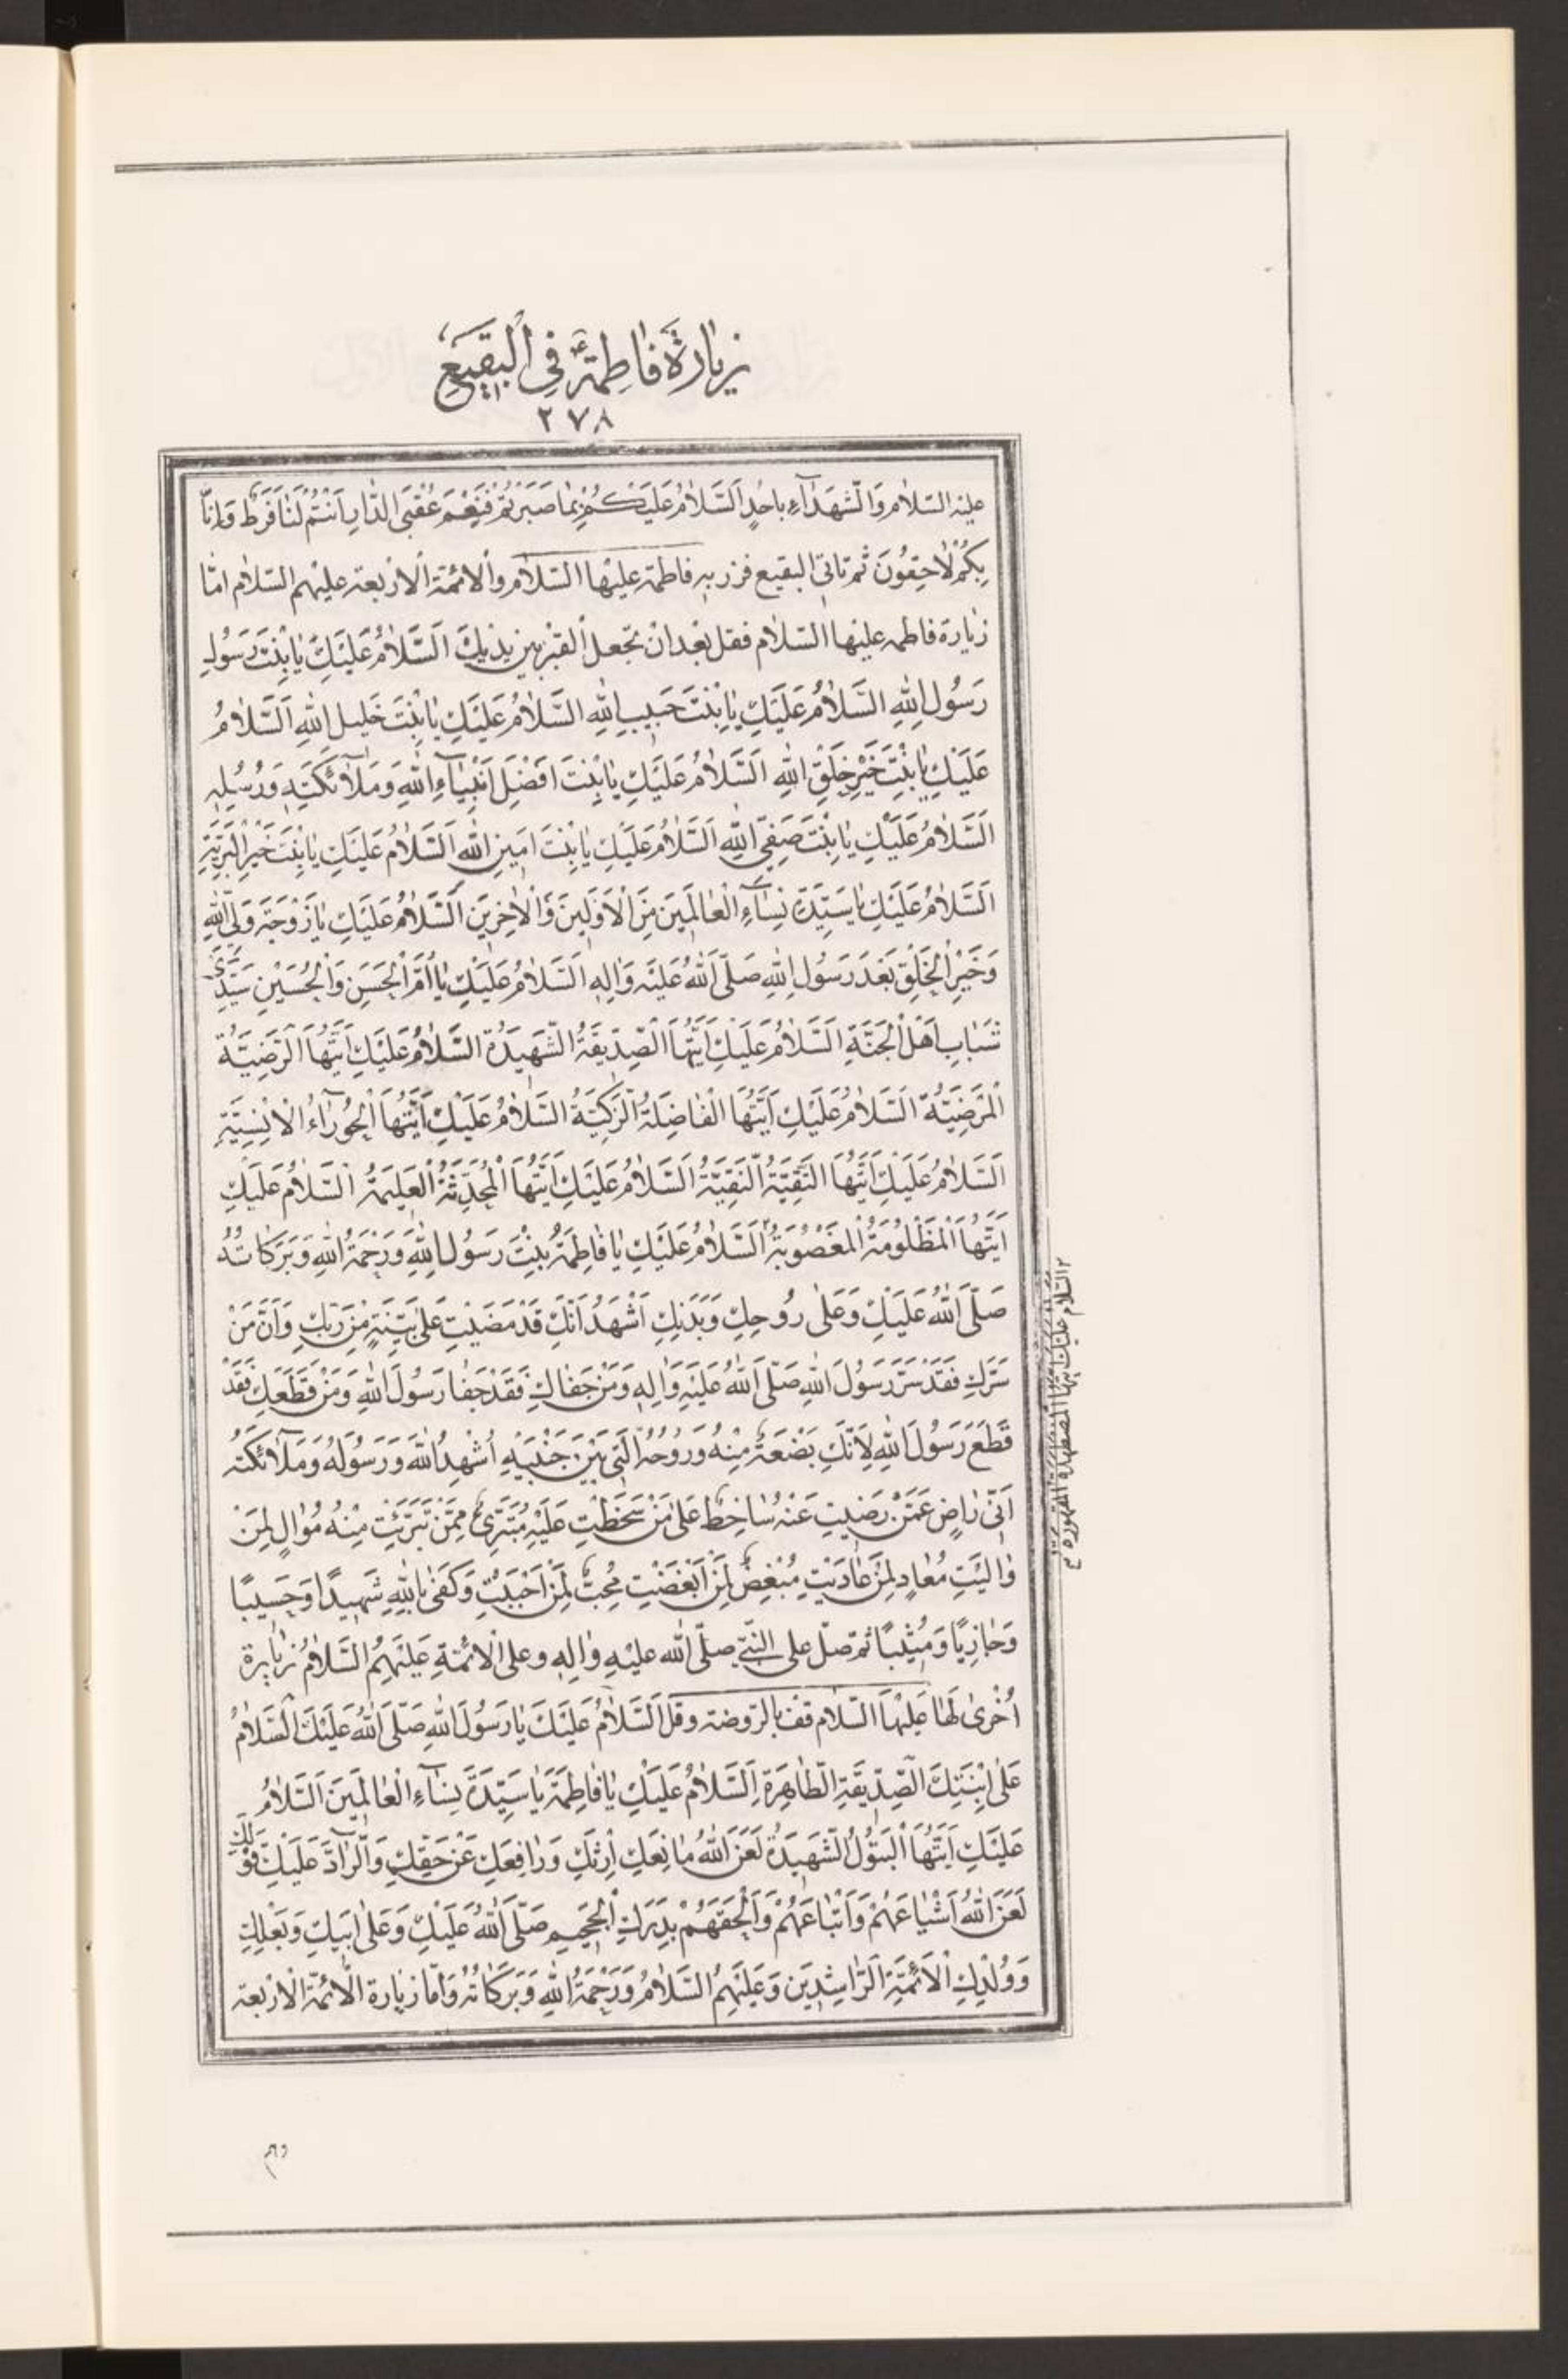 زِيَارَةُ فَاطِمَةَ ع فِي الْبَقِيعِ
٢٧٨
عليْه السّلام وَالشُّهَدَآءِ بِاُحُدٍ اَلسَّلَامُ عَلَيْكُمْ بِمَا صَبَرْتُمْ فَنِعْمَ عُقْبَى الدَّارِ اَنْتُمْ لَنَا فَرَطٌ وَاِنَّا
بِكُمْ لَاحِقُونَ ثُمّ تاتى البقيع فزر به فاطمة عليْها السّلام والائمّة الاربعة عليْهم السّلام امّا
زيارة فاطمه عليْها السّلام فقل بعْد انْ تجْعل الْقبْر بين يديْك اَلسَّلَامُ عَلَيْكِ يَا بِنْتَ رَسُولِ
رَسُولِ اللهِ السَّلَامُ عَلَيْكِ يَا بِنْتَ حَبِيبِ اللهِ السَّلَامُ عَلَيْكِ يَا بِنْتَ خَلِيلِ اللهِ اَلسَّلَامُ
عَلَيْكِ يَا بِنْتَ خَيْرِ خَلْقِ اللهِ اَلسَّلَامُ عَلَيْكِ يَا بِنْتَ اَفْضَلِ اَنْبِيَآءِ اللهِ وَمَلَآئِكَتِهِ وَرُسُلِهِ
اَلسَّلَامُ عَلَيْكِ يَا بِنْتَ صَفِيِّ اللهِ اَلسَّلَامُ عَلَيْكِ يَا بِنْتَ اَمِينِ اللهِ اَلسَّلَامُ عَلَيْكِ يَا بِنْتَ خَيْرِ الْبَرِيَّةِ
اَلسَّلَامُ عَلَيْكِ يَا سَيِّدَةَ نِسَآءِ الْعَالَمِينَ مِنَ الْاَوَّلِينَ وَالْاٰخِرِينَ اَلسَّلَامُ عَلَيْكِ يَا زَوْجَةَ وَلِيِّ اللهِ
وَخَيْرِ الْخَلْقِ بَعْدَ رَسُولِ اللهِ صَلَّى اللهُ عَلَيْهِ وَاٰلِهِ اَلسَّلَامُ عَلَيْكِ يَا اُمَّ الْحَسَنِ وَالْحُسَيْنِ سَيِّدَيْ
شَبَابِ اَهْلِ الْجَنَّةِ اَلسَّلَامُ عَلَيْكِ اَيَّتُهَا الصِّدِّيقَةُ الشَّهِيدَةُ السَّلَامُ عَلَيْكِ اَيَّتُهَا الرَّضِيَّةُ
الْمَرْضِيَّةُ اَلسَّلَامُ عَلَيْكِ اَيَّتُهَا الْفَاضِلَةُ الزَّكِيَّةُ السَّلَامُ عَلَيْكِ اَيَّتُهَا الْحُورَآءُ الْاِنْسِيَّةِ
اَلسَّلَامُ عَلَيْكِ اَيَّتُهَا التَّقِيَّةُ النَّقِيَّةُ اَلسَّلَامُ عَلَيْكِ اَيَّتُهَا الْمُحَدِّثَةُ الْعَلِيمَةُ اَلسَّلَامُ عَلَيْكِ
اَيَّتُهَا الْمَظْلُومَةُ الْمَغْصُوبَةُ ٢ اَلسَّلَامُ عَلَيْكِ يَا فَاطِمَةُ بِنْتَ رَسُولِ اللهِ وَرَحْمَةُ اللهِ وَبَرَكَاتُهُ
صَلَّى اللهُ عَلَيْكِ وَعَلَى رُوحِكِ وَبَدَنِكِ اَشْهَدُ اَنَّكِ قَدْ مَضَيْتِ عَلَى بَيِّنَةٍ مِنْ رَبِّكِ وَاَنَّ مَنْ
سَرَّكِ فَقَدْ سَرَّ رَسُولَ اللهِ صَلَّى اللهُ عَلَيْهِ وَاٰلِهِ وَمَنْ جَفَاكِ فَقَدْ جَفَا رَسُولَ اللهِ وَمَنْ قَطَعَكِ فَقَدْ
قَطَعَ رَسُولَ اللهِ لِاَنَّكِ بَضْعَةٌ مِنْهُ وَرُوحُهُ الَّتِي بَيْنَ جَنْبَيْهِ اُشْهِدُ اللهَ وَرَسُولَهُ وَمَلَآئِكَتَهُ
اَنِّى رَاضٍ عَمَّنْ رَضِيتِ عَنْهُ سَاخِطٌ عَلَى مَنْ سَخَطْتِ عَلَيْهِ مُتَبَرِّئٌ مِمَّنْ تَبَرَّئْتِ مِنْهُ مُوَالٍ لِمَنْ
وَالَيْتِ مُعَادٍ لِمَنْ عَادَيْتِ مُبْغِضٌ لِمَنْ اَبْغَضْتِ مُحِبٌّ لِمَنْ اَحْبَبْتِ وَكَفَى بِاللهِ شَهِيدًا وَحَسِيبًا
وَجَازِيًا وَمُثِيبًا ثمّ صلّ على النّبيّ صلّى الله عليْهِ وَاٰلِهِ وعلى الائمّةِ عَلَيْهِمُ السَّلَامُ زيارة
اُخْرَى لَهَا عَلَيْهَا السّلام قف بالرّوضة وقل اَلسَّلَامُ عَلَيْكَ يَا رَسُولَ اللهِ صَلَّى اللهُ عَلَيْكَ السَّلَامُ
عَلَى ابْنَتِكَ الصِّدِّيقَةِ الطَّاهِرَةِ اَلسَّلَامُ عَلَيْكِ يَا فَاطِمَةَ يَا سَيِّدَةَ نِسَآءِ الْعَالَمِينَ اَلسَّلَامُ
عَلَيْكِ اَيَّتُهَا الْبَتُولُ الشَّهِيدَةُ لَعَنَ اللهُ مَانِعَكِ اِرْثَكِ وَرَافِعَكِ عَنْ حَقِّكِ وَالرَّآدَّ عَلَيْكِ قَوْلَكِ
لَعَنَ اللهُ اَشْيَاعَهُمْ وَاَتْبَاعَهُمْ وَاَلْحَقَهُمْ بِدَرَكِ الْجَحِيمِ صَلَّى اللهُ عَلَيْكِ وَعَلَى اَبِيكِ وَبَعْلِكِ
وَوُلْدِكِ الْاَئِمَّةِ الرَّاشِدِينَ وَعَلَيْهِمُ السَّلَامُ وَرَحْمَةُ اللهِ وَبَرَكَاتُهُ وَامّا زيارة الائمّة الاربعة
٢ السّلام عليك ايّتها المضطهدة المقهورة